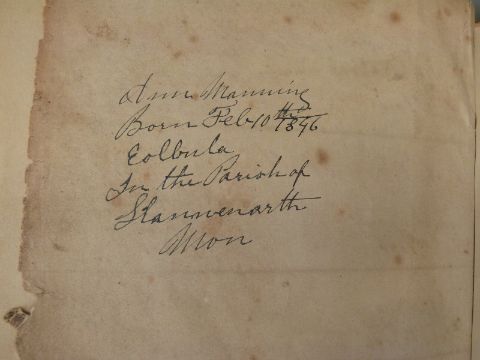 Ann Manning
Born Feb 10th 1846
Eolbula
In the Parish of
Llanwenarth
Mon